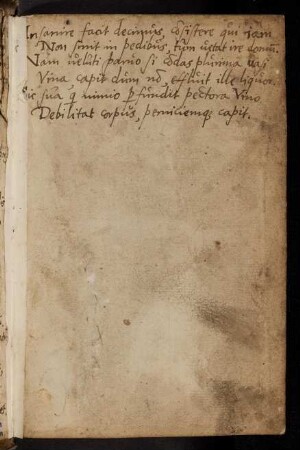 Insanire facit decimus, cõsistere qui iam
Non sinit in pedibus, tum
Nam veluti paruo si cõdas plurima vas
Vina capit dum nõ, effluit ille liquor.
Sic sua q nimio pfundit pectora Vino
Debilitat corpus, perniciemq capit.